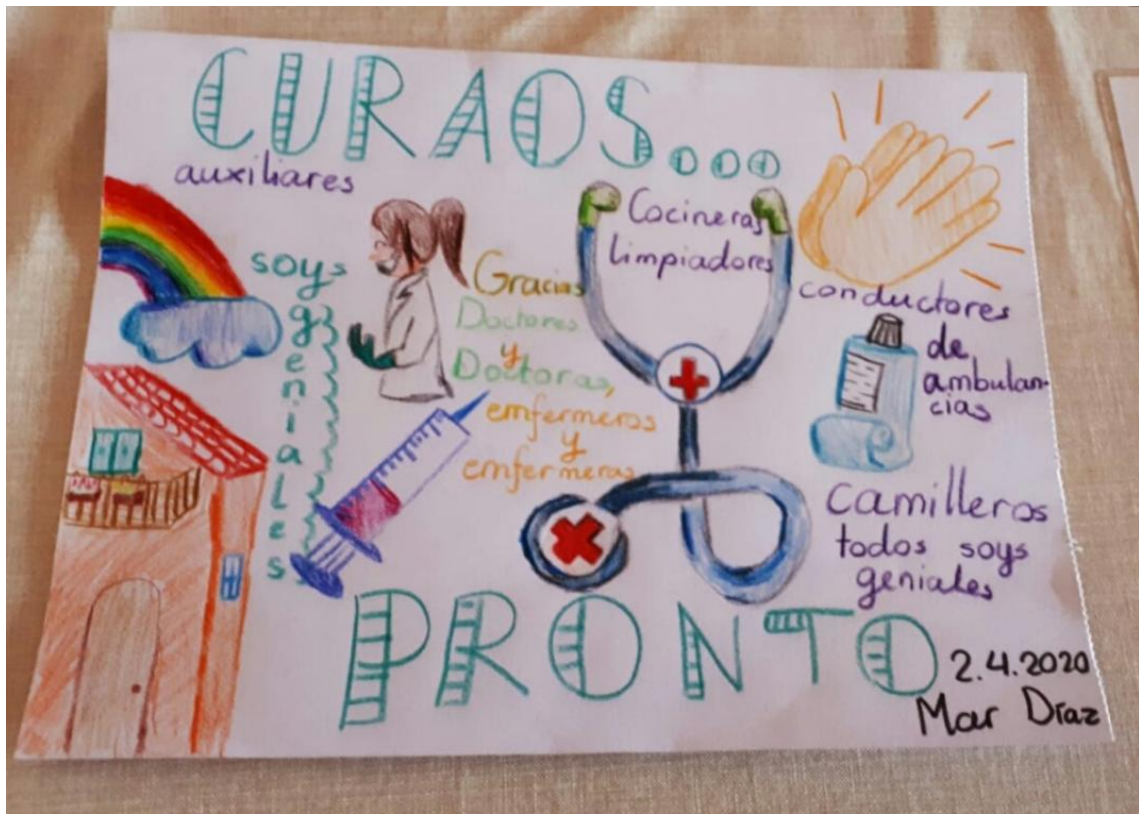 CURAOS...
auxiliares
soys
geniales
Gracias
Doctores
y
Doctoras,
enfermeros
y
enfermeras
Cocineras
limpiadores
conductores
de
ambulan-
cias
Camilleros
todos soys
geniales
PRONTO
2.4.2020
Mar Díaz